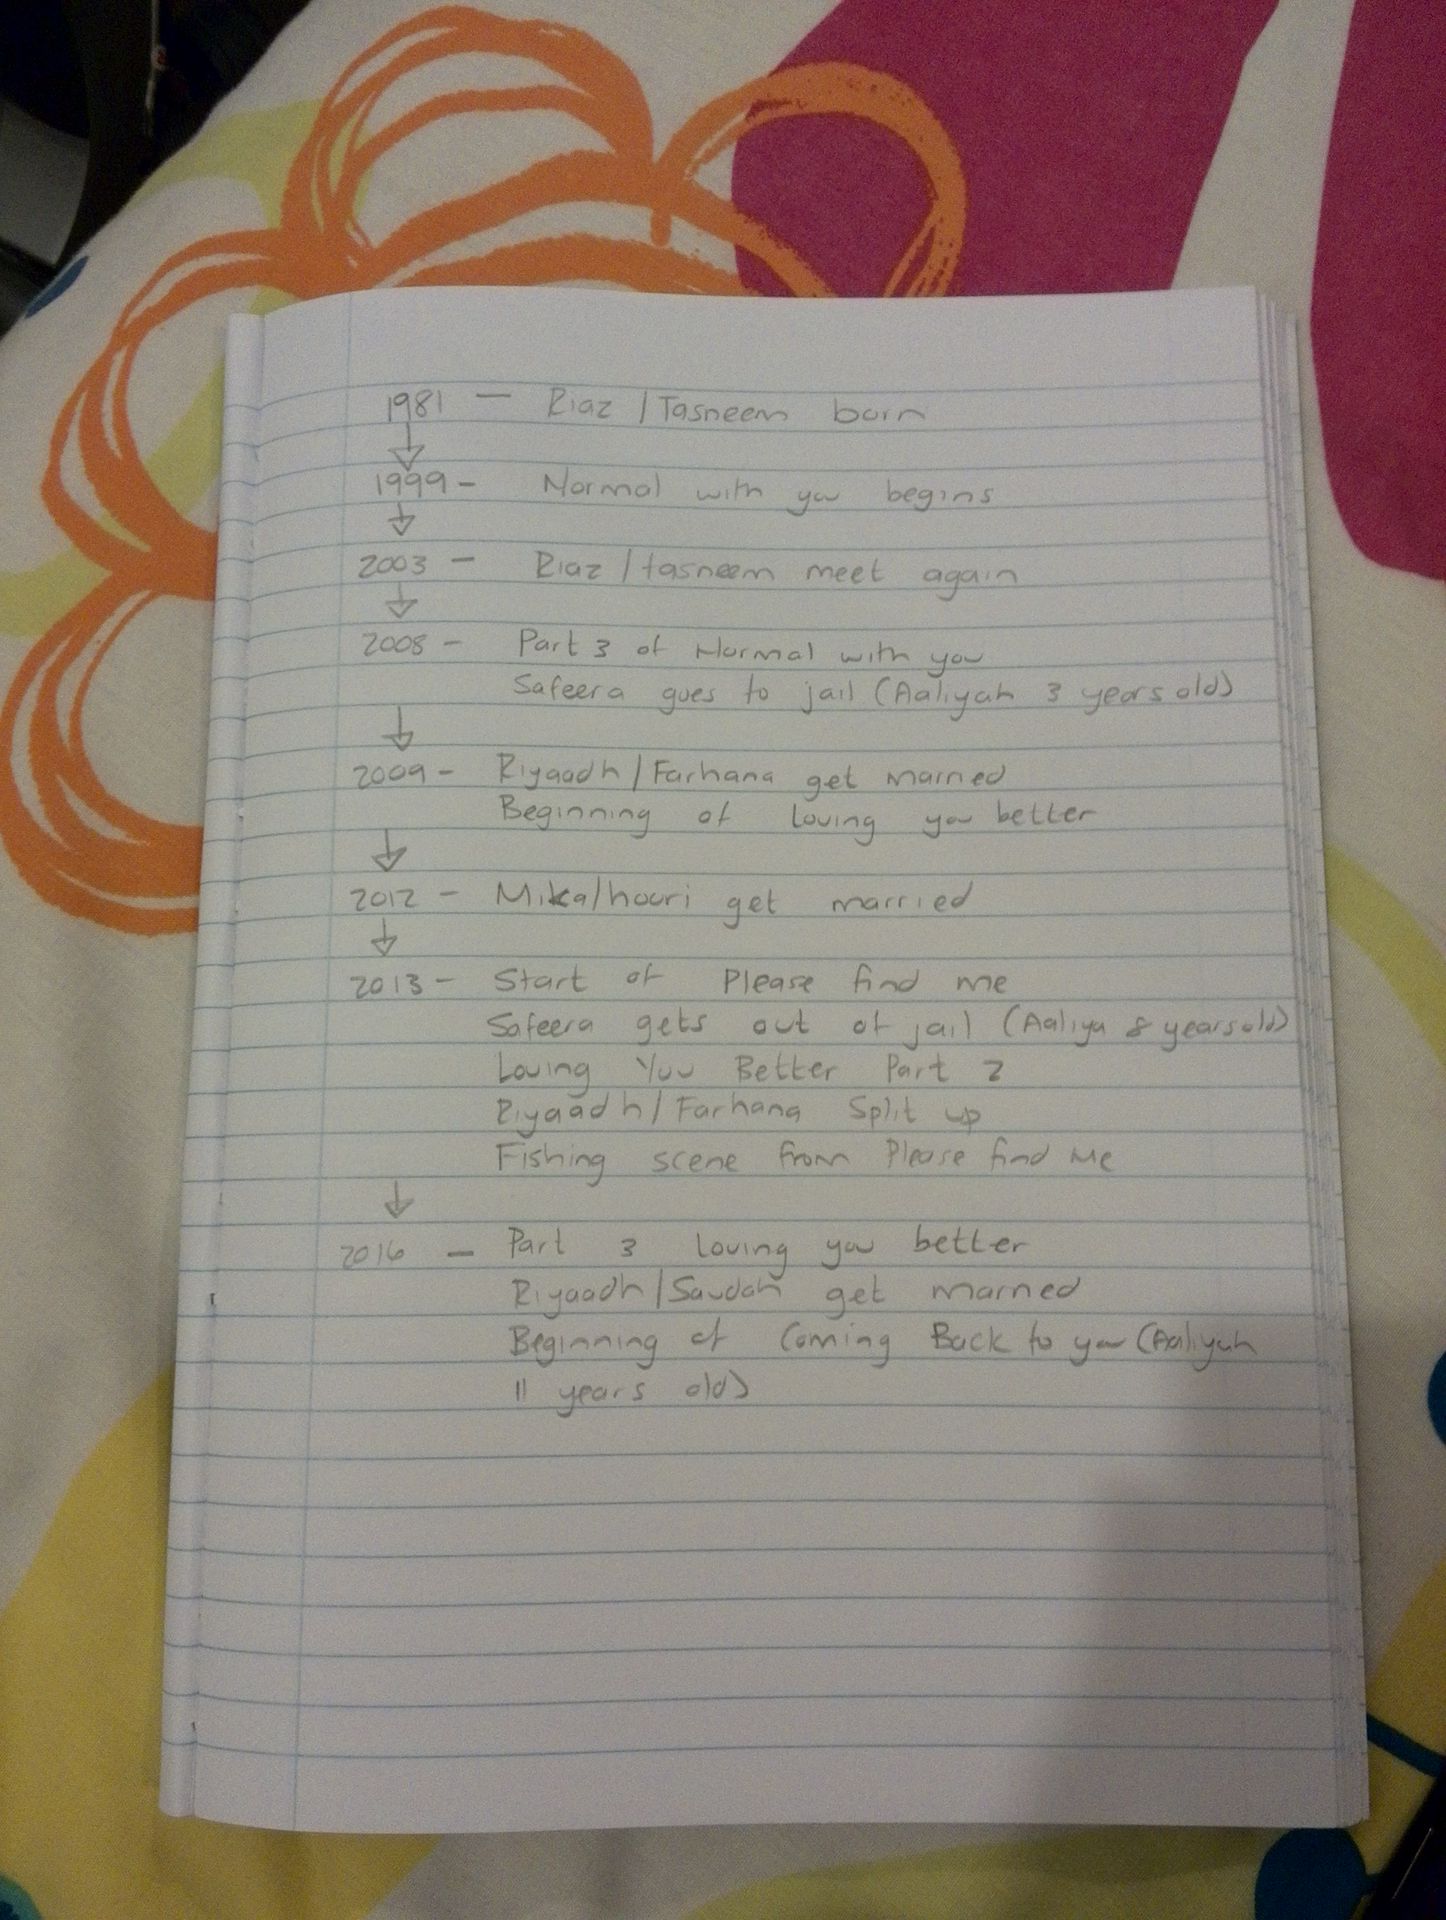 1981 — Riaz / Tasneem born
1999 - Normal with you begins
2003 — Riaz / tasneem meet again
2008 - Part 3 of Normal with you
Safeera goes to jail (Aaliyah 3 years old)
2009 - Riyaadh / Farhana get married
Beginning of loving you better
2012 - Mika/houri get married
2013 - Start of Please find me
Safeera gets out of jail (Aaliya 8 years old)
Loving You Better Part 2
Riyaadh / Farhana Split up
Fishing scene from Please find Me
2016 — Part 3 loving you better
Riyaadh / Saudah get married
Beginning of Coming Back to you (Aaliyah
11 years old)